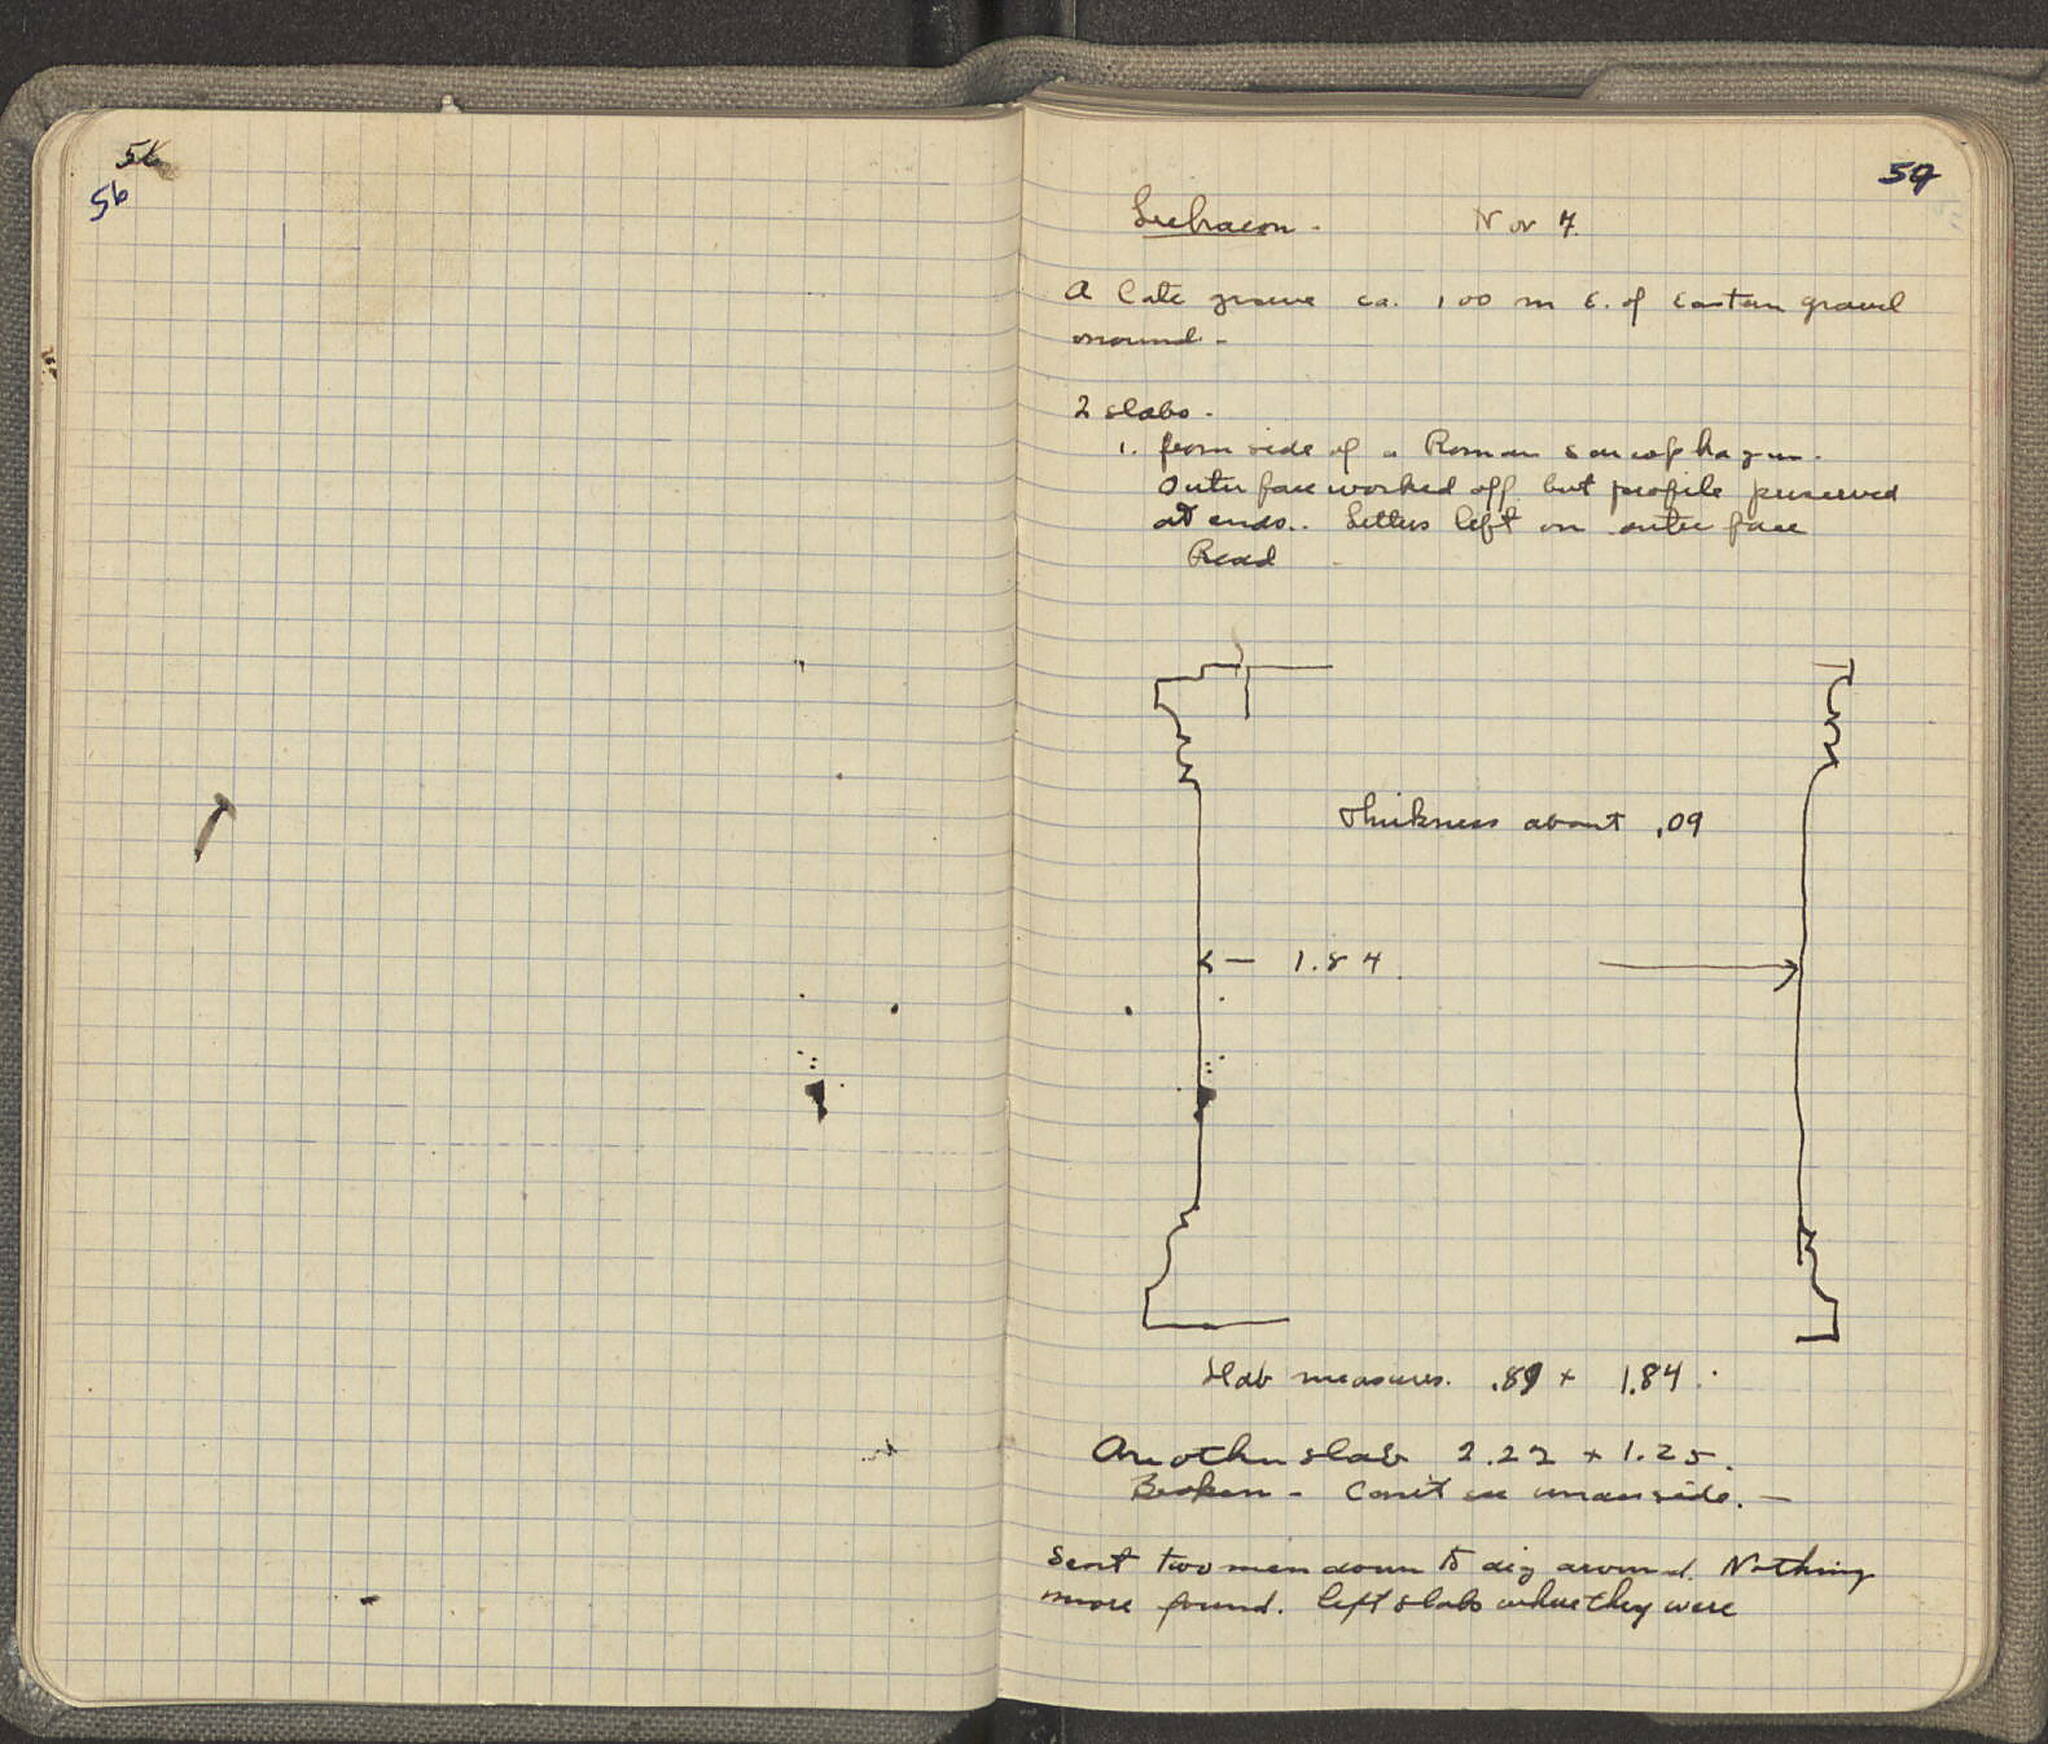 56
56
57
Lechaeon - Nov 7.
A late grave ca. 100 m E. of Eastern gravel
mound -
2 slabs -
1. from side of a Roman sarcophagus.
Outer face worked off but profile preserved
at ends.. Letters left on outer face
Read
Thickness about .09
1.84.
Slab measures. .89 x 1.84.
Another slab 2.22 x 1.25.
Broken - Can't see underside. -
Sent two men down to dig around. Nothing
more found. left slabs where they were